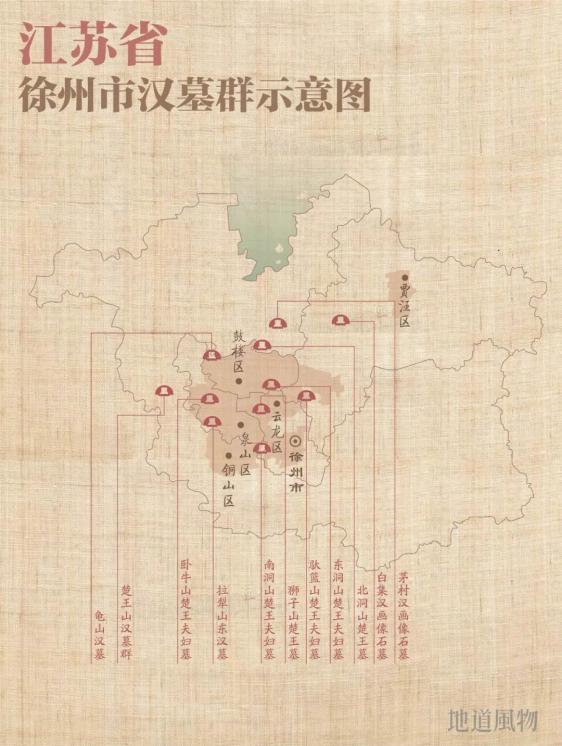 江苏省
徐州市汉墓群示意图
贾汪区
鼓楼区
云龙区
泉山区
徐州市
铜山区
龟山汉墓
楚王山汉墓群
卧牛山楚王夫妇墓
拉犁山东汉墓
南洞山楚王夫妇墓
狮子山楚王墓
驮篮山楚王夫妇墓
东洞山楚王夫妇墓
北洞山楚王墓
白集汉画像石墓
茅村汉画像石墓
地道風物